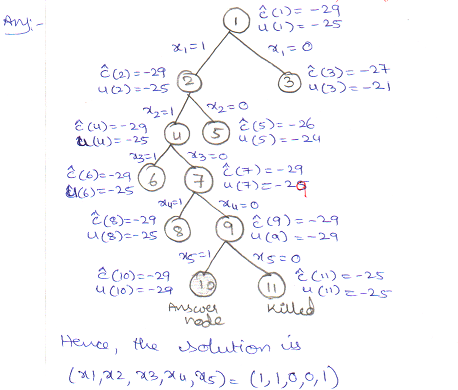 Ans:-
1 ĉ(1) = -29
u(1) = -25
x₁=1 x₁=0
ĉ(2) = -29
u(2) = -25
2
3 ĉ(3) = -27
u(3) = -21
x₂=1 x₂=0
ĉ(4) = -29
u(4) = -25
4
5 ĉ(5) = -26
u(5) = -24
x₃=1 x₃=0
ĉ(6) = -29
u(6) = -25
6
7 ĉ(7) = -29
x₄=1 x₄=0
ĉ(8) = -29
u(8) = -25
8
9 ĉ(9) = -29
u(9) = -29
x₅=1 x₅=0
ĉ(10) = -29
u(10) = -29
10
11 ĉ(11) = -25
u(11) = -25
Answer
node
Killed
Hence, the solution is
(x1, x2, x3, x4, x5) = (1, 1, 0, 0, 1)